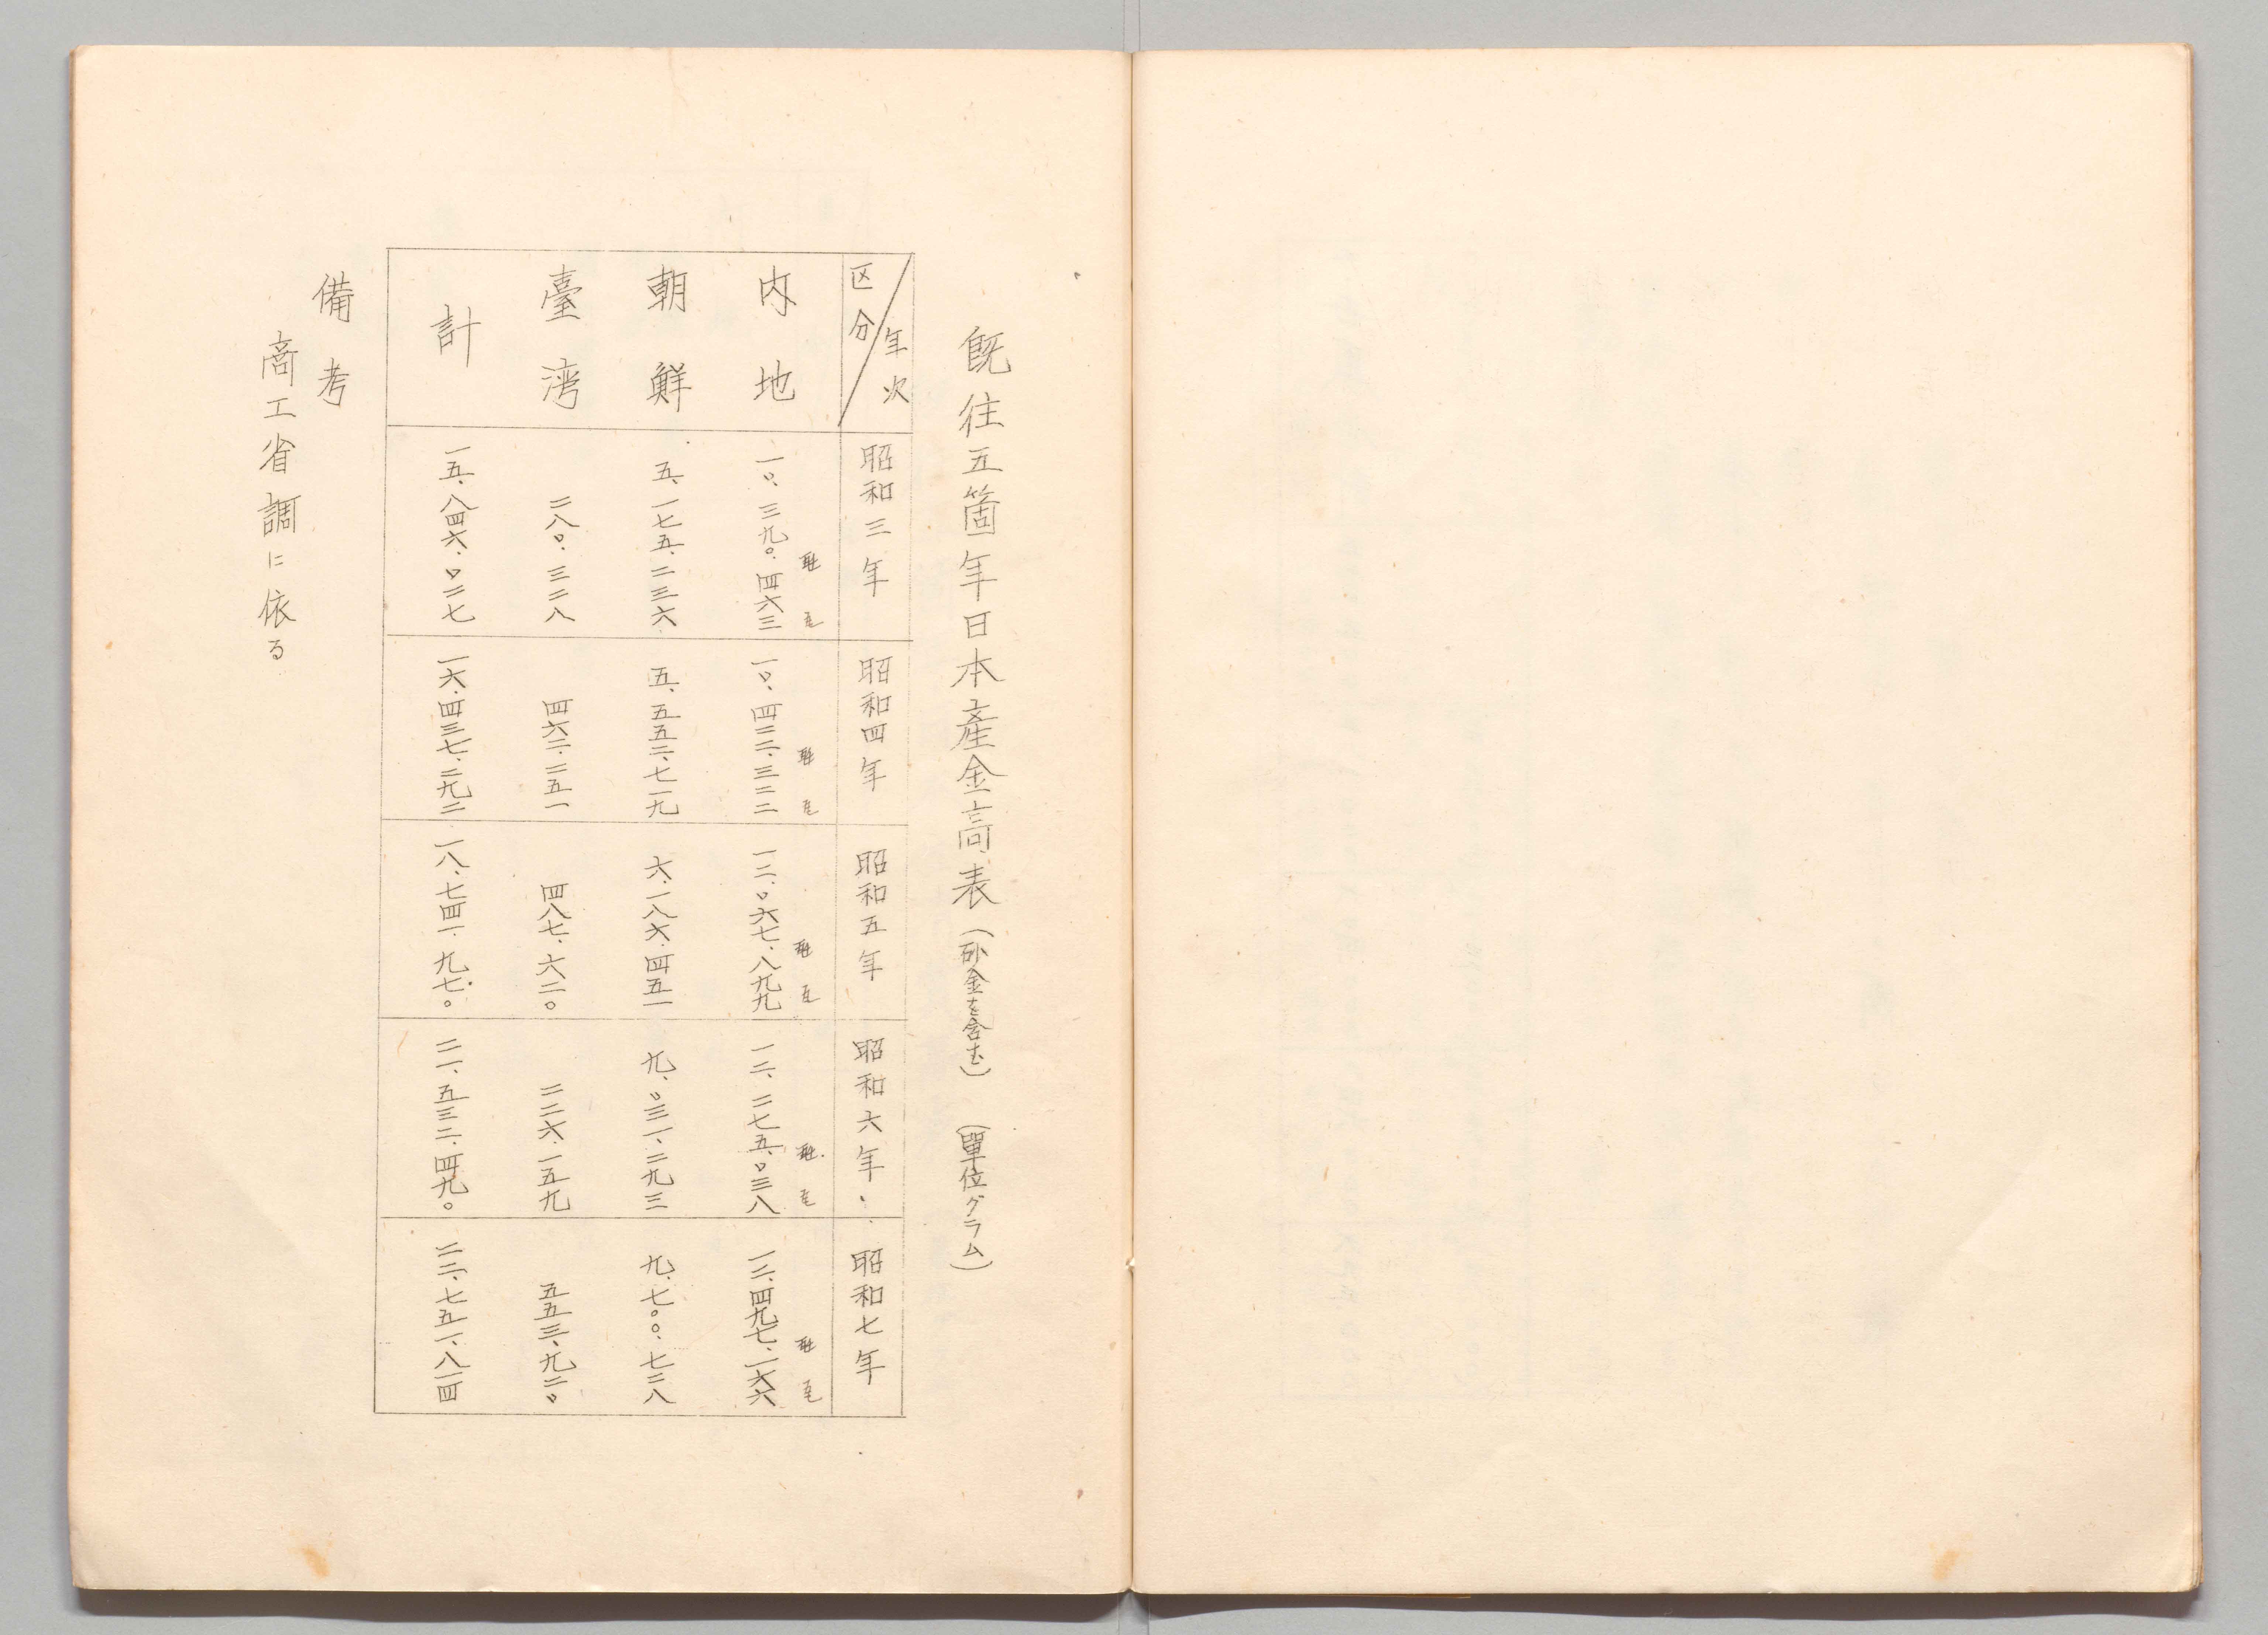 既往五箇年日本産金高表(砂金を含む) (單位グラム)
年次
区分
昭和三年
昭和四年
昭和五年
昭和六年
昭和七年
内地
瓩 瓦
一〇、三九〇、四六三
瓩 瓦
一〇、四二二、三二二
瓩 瓦
一二、〇六七、八九九
瓩 瓦
一二、二七五、〇三八
瓩 瓦
一二、四九七、一六六
朝鮮
五、一七五、二三六
五、五五二、七一九
六、一八六、四五一
九、〇三一、二九三
九、七〇〇、七二八
臺湾
二八〇、三二八
四六二、二五一
四八七、六二〇
二二六、一五九
五五三、九二〇
計
一五、八四六、〇二七
一六、四三七、二九二
一八、七四一、九七〇
二一、五三二、四九〇
二二、七五一、八一四
備考
商工省調に依る